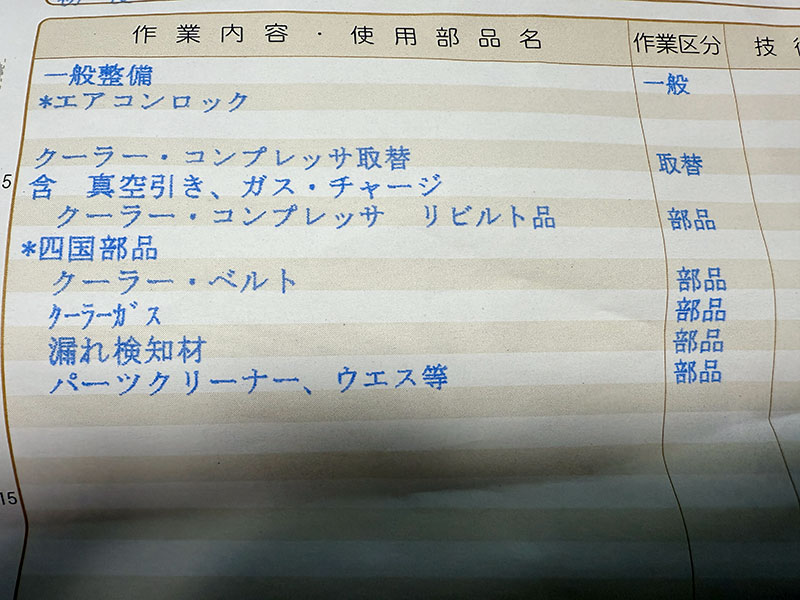 作業内容・使用部品名 作業区分 技
一般整備 一般
*エアコンロック
クーラー・コンプレッサ取替 取替
5
含 真空引き、ガス・チャージ
クーラー・コンプレッサ リビルト品 部品
*四国部品
クーラー・ベルト 部品
ｸｰﾗｰｶﾞｽ 部品
漏れ検知材 部品
パーツクリーナー、ウエス等 部品
15